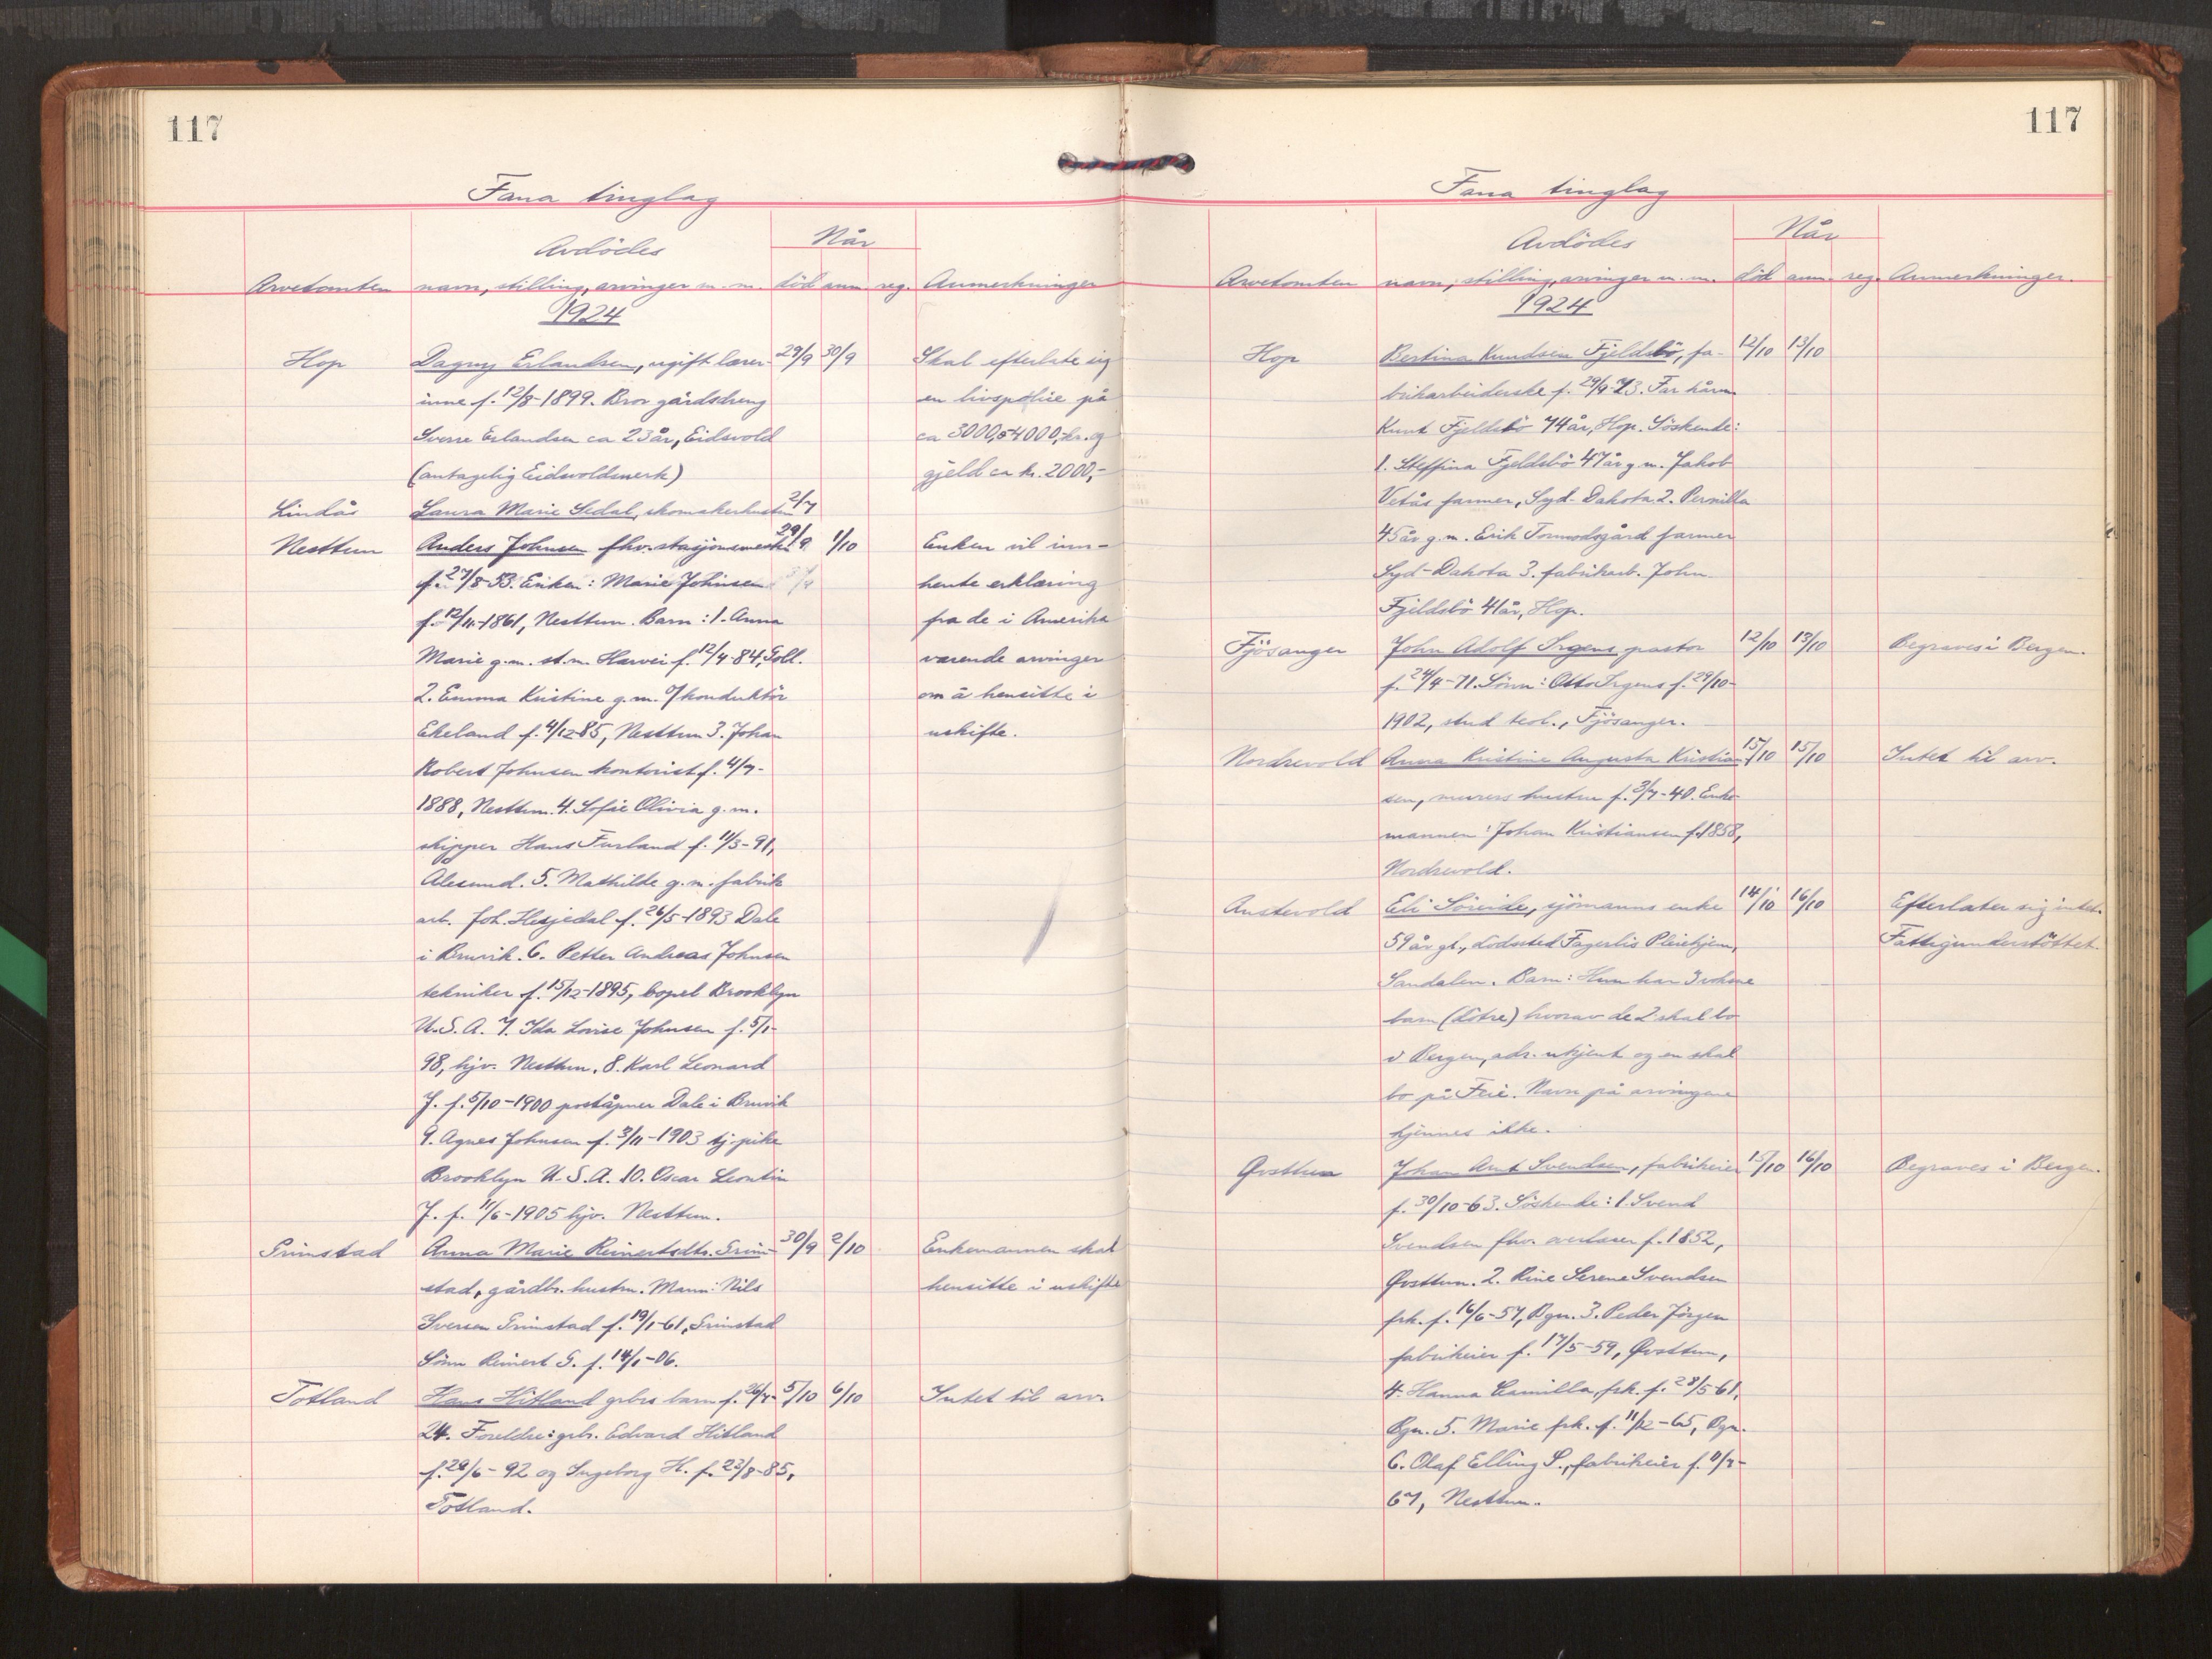 117
Fana tinglag
Når
Avdødes
Arvetomten navn, stilling, arvinger m.m. død anm reg. Anmerkninger
1924
Hop Dagny Erlandsen, ugift lærer- 29/9 30/9 Skal efterlate sig
inne f. 12/8-1899. Bror gårdsdreng en livspolice på
Sverre Erlandsen ca 23 år, Eidsvold ca 3000,- à 4000,- kr. og
(antagelig Eidsvoldsverk) gjeld ca kr. 2000,-
Lindås Laura Marie Sedal, skomakerhustru 2/7
Nesttun Anders Johnsen fhv. stasjonsmester 29/9 1/10 Enken vil inn-
f. 27/8-53. Enken: Marie Johnsen hente erklæring
f. 12/11-1861, Nesttun. Barn: 1. Anna fra de i Amerika
Marie g.m. st.m. Harvei f. 12/4-84, værende arvinger
2. Emma Kristine g.m. konduktør om å hensitte i
Ekeland f. 4/12-85, Nesttun 3. Johan uskifte.
Robert Johnsen kontorist f. 4/7-
1888, Nesttun. 4. Sofie Olivia g.m.
skipper Hans Furland f. 11/3-91,
Ålesund. 5. Mathilde g.m. fabrik
arb. Joh. Hesjedal f. 26/5-1893 Dale
i Bruvik. 6. Petter Andreas Johnsen
tekniker f. 15/12-1895, bopel Brooklyn
U.S.A. 7. Ida Lovise Johnsen f. 5/1-
98, hjv. Nesttun. 8. Karl Leonard
J. f. 5/10-1900 poståpner Dale i Bruvik
9. Agnes Johnsen f. 3/11-1903 tj.pike
Brooklyn U.S.A. 10. Oscar Leontin
J. f. 11/6-1905 hjv. Nesttun.
Grimstad Anna Marie Reinertsdtr. Grim- 30/9 2/10 Enkemannen skal
stad, gårdbr. hustru. Mann: Nils hensitte i uskifte
Iversen Grimstad f. 19/1-61, Grimstad
Sönn Reinert G. f. 14/1-06.
Totland Hans Hitland grbrs barn f. 26/7- 5/10 6/10 Intet til arv.
24. Foreldre: grb. Edvard Hitland
f. 29/6-92 og Ingeborg H. f. 23/8-85,
Totland.
117
Fana tinglag
Når
Avdödes
Arvetomten navn, stilling, arvinger m.m. död anm. reg. Anmerkninger.
1924
Hop Bertina Knudsen Fjeldsbö, fa- 12/10 13/10
brikarbeiderske f. 29/9-73. Far kårm.
Knut Fjeldsbö 74 år, Hop. Söskende:
1. Steffina Fjeldsbö 47 år g.m. Jakob
Vetås farmer, Syd-Dakota. 2. Pernilla
45 år g.m. Erik Tormodsgård farmer
Syd-Dakota 3. fabrikarb. John
Fjeldsbö 41 år, Hop.
Fjösanger John Adolf Irgens pastor 12/10 13/10 Begraves i Bergen.
f. 24/4-71. Sönn: Otto Irgens f. 29/10-
1902, stud teol., Fjösanger.
Nordrevold Anna Kristine Augusta Kristian- 15/10 15/10 Intet til arv.
sen, murers hustru f. 3/7-40. Enke-
mannen: Johan Kristiansen f. 1858,
Nordrevold.
Austevold Eli Söreide, sjömanns enke 14/10 16/10 Efterlater sig intet.
59 år gl., dödssted Fagerlis Pleiehjem, Fattigunderstöttet.
Sandalen. Barn: Hun har 3 voksne
barn (dötre) hvorav de 2 skal bo
i Bergen, adr. ukjent og en skal
bo på Feie. Navn på arvingene
kjennes ikke.
Øvsttun Johan Arnt Svendsen, fabrikeier 15/10 16/10 Begraves i Bergen.
f. 30/10-63. Söskende: 1. Svend
Svendsen fhv. overlærer f. 1852,
Øvsttun. 2. Rine Serene Svendsen
frk. f. 16/6-57, Bgn. 3. Peder Jörgen
fabrikeier f. 17/5-59, Øvsttun,
4. Hanna Camilla, frk. f. 28/5-61,
Bgn. 5. Marie frk. f. 11/12-65, Bgn.
6. Olaf Elling S., fabrikeier f.
67, Nesttun.